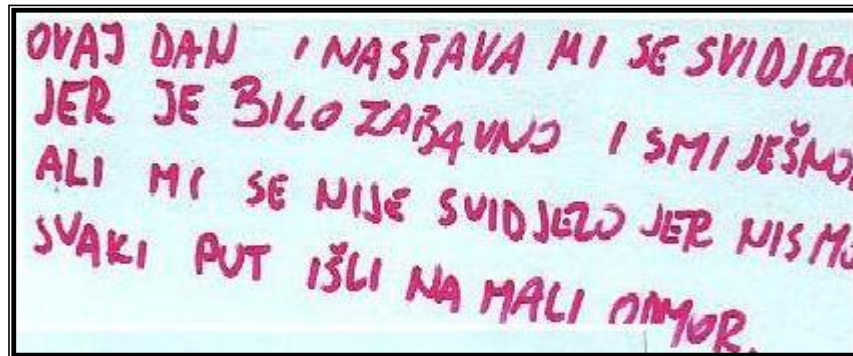 OVAJ DAN I NASTAVA MI SE SVIDJELA
JER JE BILO ZABAVNO I SMIJEŠNO.
ALI MI SE NIJE SVIDJELO JER NISMO
SVAKI PUT IŠLI NA MALI ODMOR.